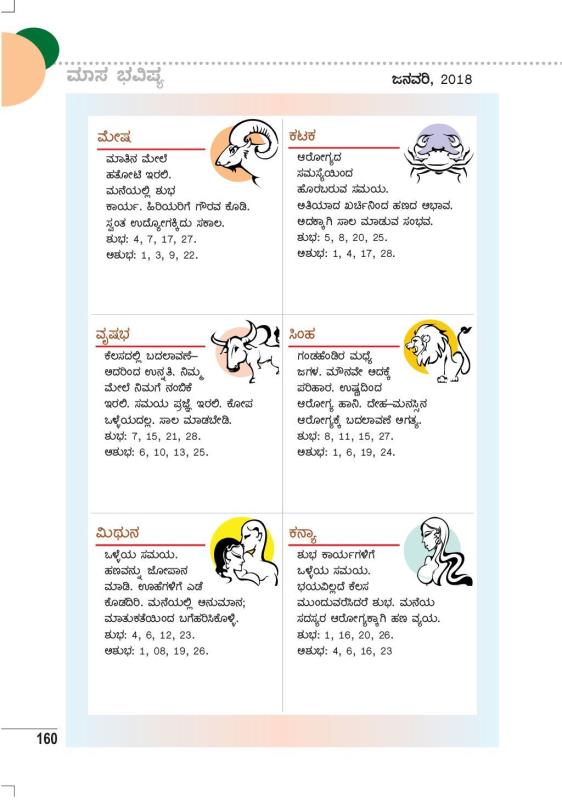 ಮಾಸ ಭವಿಷ್ಯ
ಜನವರಿ, 2018
ಮೇಷ
ಮಾತಿನ ಮೇಲೆ
ಹತೋಟಿ ಇರಲಿ.
ಮನೆಯಲ್ಲಿ ಶುಭ
ಕಾರ್ಯ. ಹಿರಿಯರಿಗೆ ಗೌರವ ಕೊಡಿ.
ಸ್ವಂತ ಉದ್ಯೋಗಕ್ಕಿದು ಸಕಾಲ.
ಶುಭ: 4, 7, 17, 27.
ಅಶುಭ: 1, 3, 9, 22.
ಕಟಕ
ಆರೋಗ್ಯದ
ಸಮಸ್ಯೆಯಿಂದ
ಹೊರಬರುವ ಸಮಯ.
ಅತಿಯಾದ ಖರ್ಚಿನಿಂದ ಹಣದ ಅಭಾವ.
ಅದಕ್ಕಾಗಿ ಸಾಲ ಮಾಡುವ ಸಂಭವ.
ಶುಭ: 5, 8, 20, 25.
ಅಶುಭ: 1, 4, 17, 28.
ವೃಷಭ
ಕೆಲಸದಲ್ಲಿ ಬದಲಾವಣೆ–
ಅದರಿಂದ ಉನ್ನತಿ. ನಿಮ್ಮ
ಮೇಲೆ ನಿಮಗೆ ನಂಬಿಕೆ
ಇರಲಿ. ಸಮಯ ಪ್ರಜ್ಞೆ ಇರಲಿ. ಕೋಪ
ಒಳ್ಳೆಯದಲ್ಲ. ಸಾಲ ಮಾಡಬೇಡಿ.
ಶುಭ: 7, 15, 21, 28.
ಅಶುಭ: 6, 10, 13, 25.
ಸಿಂಹ
ಗಂಡಹೆಂಡಿರ ಮಧ್ಯೆ
ಜಗಳ. ಮೌನವೇ ಅದಕ್ಕೆ
ಪರಿಹಾರ. ಉಷ್ಣದಿಂದ
ಆರೋಗ್ಯ ಹಾನಿ. ದೇಹ–ಮನಸ್ಸಿನ
ಆರೋಗ್ಯಕ್ಕೆ ಬದಲಾವಣೆ ಅಗತ್ಯ.
ಶುಭ: 8, 11, 15, 27.
ಅಶುಭ: 1, 6, 19, 24.
ಮಿಥುನ
ಒಳ್ಳೆಯ ಸಮಯ.
ಹಣವನ್ನು ಜೋಪಾನ
ಮಾಡಿ. ಊಹೆಗಳಿಗೆ ಎಡೆ
ಕೊಡದಿರಿ. ಮನೆಯಲ್ಲಿ ಅನುಮಾನ;
ಮಾತುಕತೆಯಿಂದ ಬಗೆಹರಿಸಿಕೊಳ್ಳಿ.
ಶುಭ: 4, 6, 12, 23.
ಅಶುಭ: 1, 08, 19, 26.
ಕನ್ಯಾ
ಶುಭ ಕಾರ್ಯಗಳಿಗೆ
ಒಳ್ಳೆಯ ಸಮಯ.
ಭಯವಿಲ್ಲದೆ ಕೆಲಸ
ಮುಂದುವರೆಸಿದರೆ ಶುಭ. ಮನೆಯ
ಸದಸ್ಯರ ಆರೋಗ್ಯಕ್ಕಾಗಿ ಹಣ ವ್ಯಯ.
ಶುಭ: 1, 16, 20, 26.
ಅಶುಭ: 4, 6, 16, 23
160